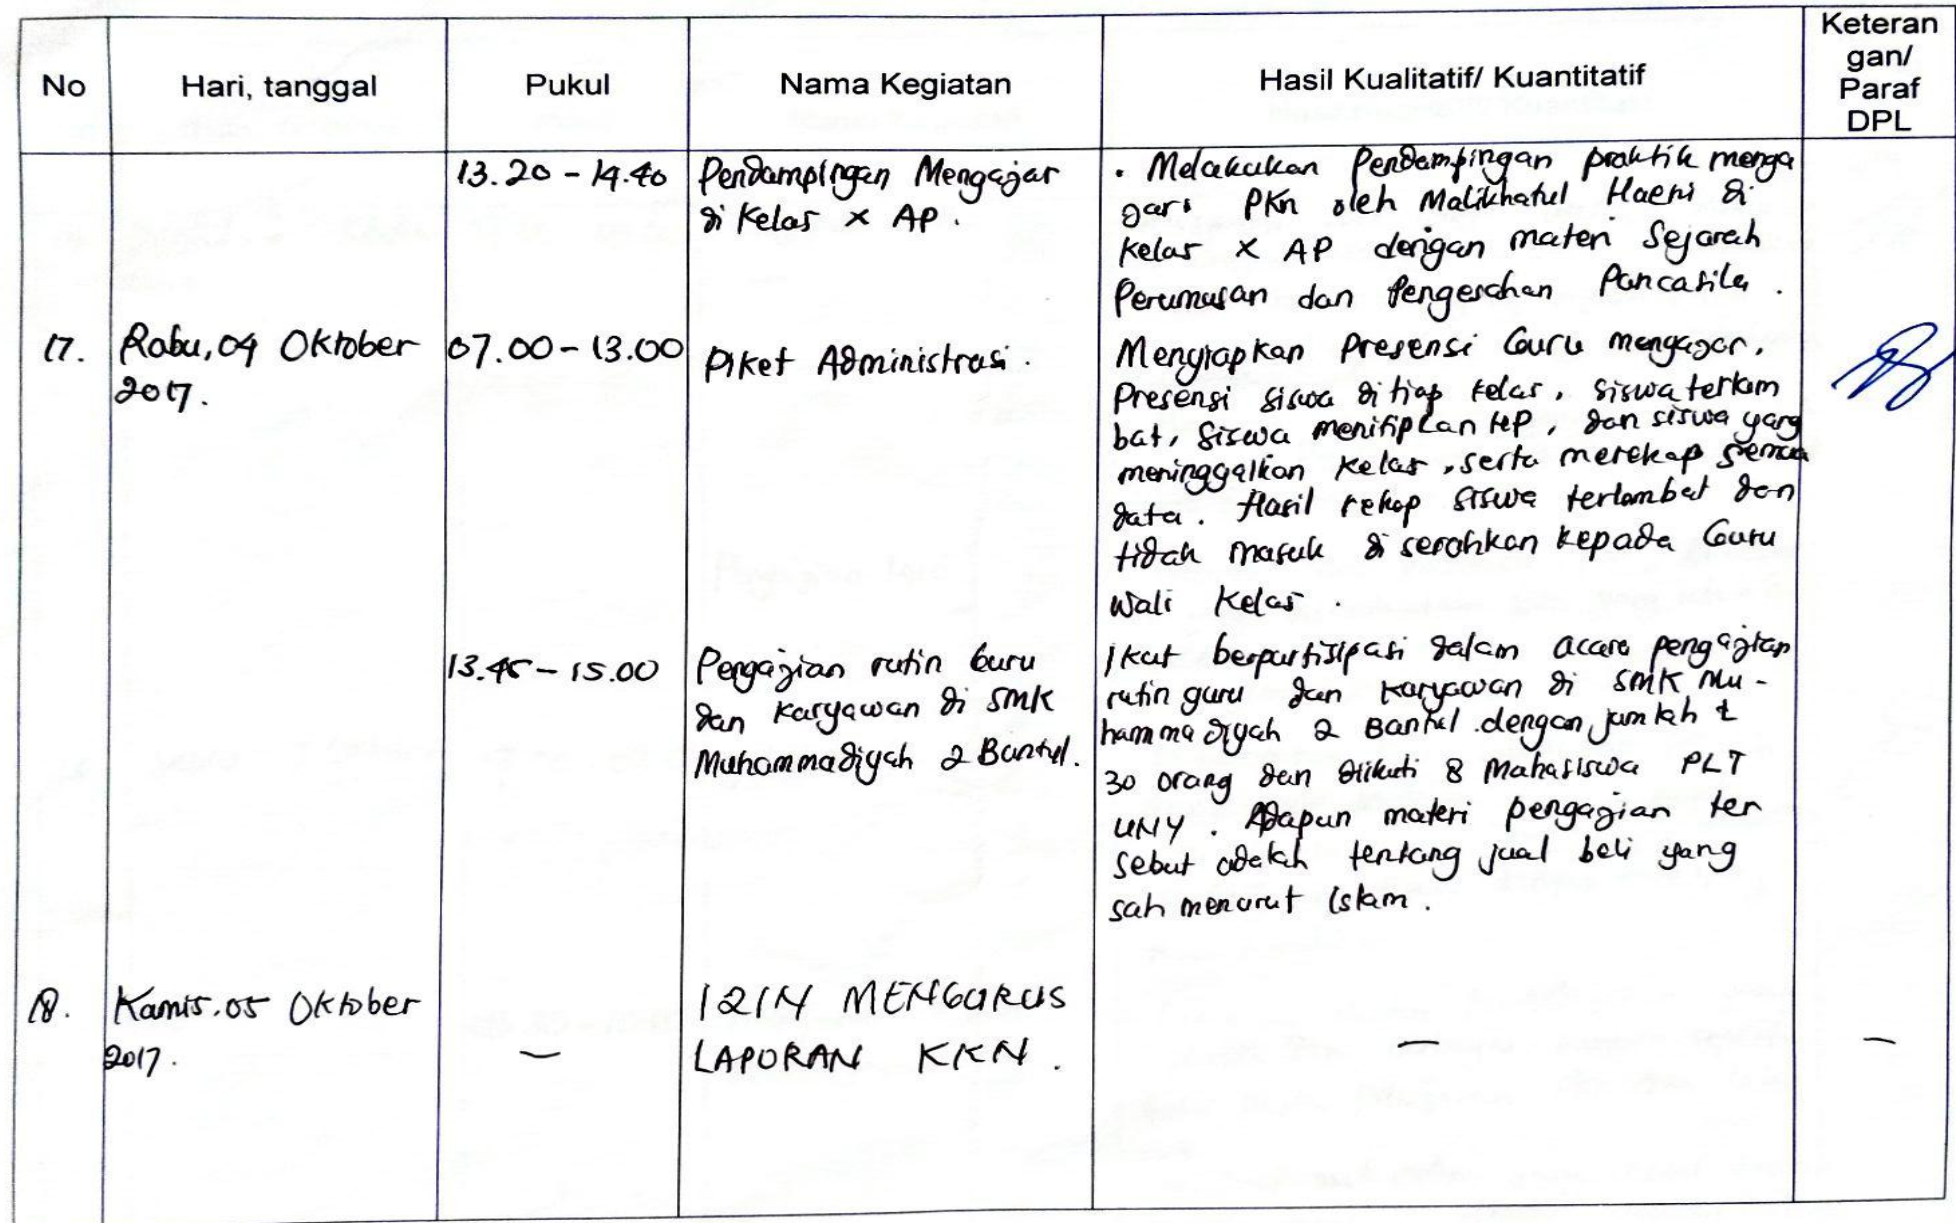 No
Hari, tanggal
Pukul
Nama Kegiatan
Hasil Kualitatif/ Kuantitatif
Keteran
gan/
Paraf
DPL
13.20 - 14.40
Pendampingan Mengajar
di Kelas X AP.
• Melakukan Pendampingan praktik menga
jari PKn oleh Malikhatul Haeni di
Kelas X AP dengan materi Sejarah
Perumusan dan Pengesahan Pancasila.
17.
Rabu, 04 Oktober
2017.
07.00 - 13.00
Piket Administrasi.
Menyiapkan Presensi Guru mengajar,
Presensi siswa di tiap kelas, siswa terlam
bat, siswa menitipkan HP, dan siswa yang
meninggalkan Kelas, serta merekap semua
data. Hasil rekap siswa terlambat dan
tidak masuk di serahkan kepada Guru
Wali Kelas.
13.45 - 15.00
Pengajian rutin Guru
dan Karyawan di SMK
Muhammadiyah 2 Bantul.
Ikut berpartisipasi dalam acara pengajian
rutin guru dan Karyawan di SMK Mu-
hammadiyah 2 Bantul dengan jumlah ±
30 orang dan diikuti 8 Mahasiswa PLT
UNY. Adapun materi pengajian ter
sebut adalah tentang jual beli yang
sah menurut Islam.
18.
Kamis, 05 Oktober
2017.
—
IZIN MENGURUS
LAPORAN KKN.
—
—